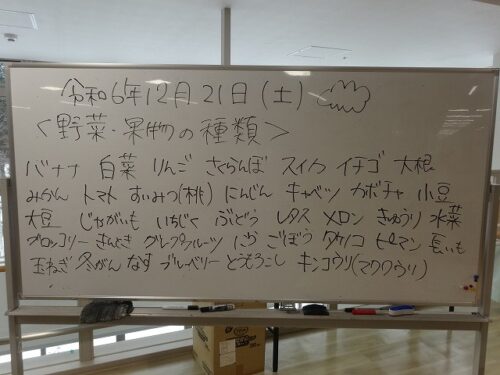 令和6年12月21日(土)
<野菜・果物の種類>
バナナ 白菜 りんご さくらんぼ スイカ イチゴ 大根
みかん トマト すいみつ(桃) にんじん キャベツ カボチャ 小豆
大豆 じゃがいも いちじく ぶどう レタス メロン きゅうり 水菜
ブロッコリー きんとき グレープフルーツ にら ごぼう タケノコ ピーマン 長いも
玉ねぎ 冬がん なす ブルーベリー とうもろこし キンコウリ(マクワウリ)